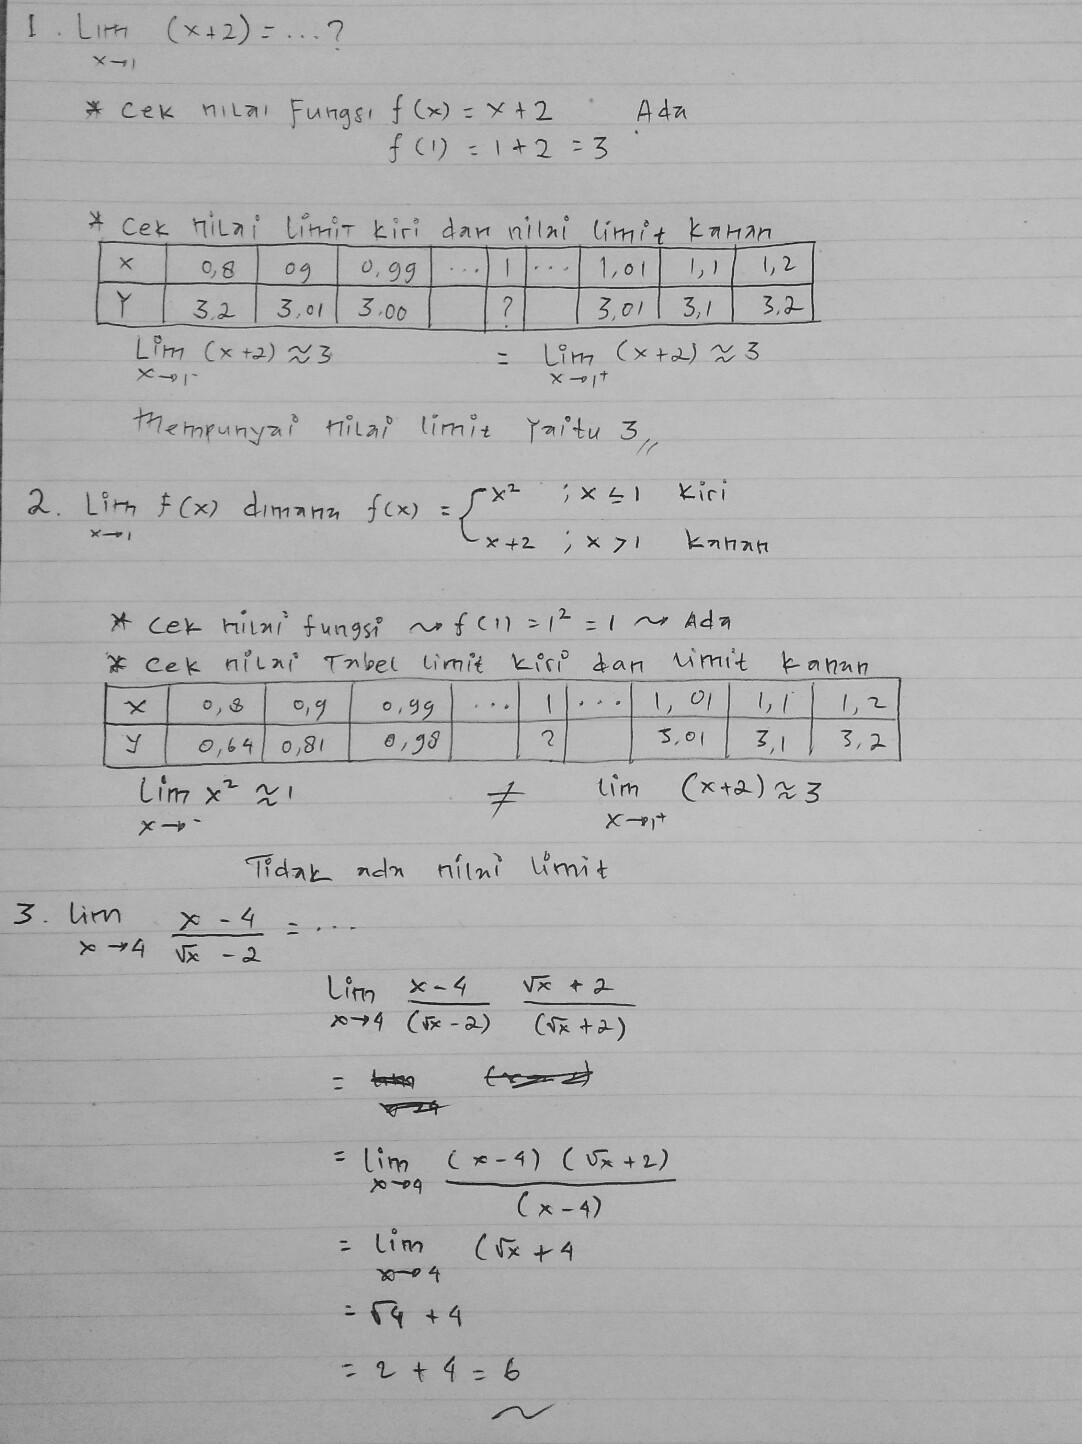 1. Lim (x+2) = ...?
x→1
* Cek nilai Fungsi f(x) = x+2 Ada
f(1) = 1+2 = 3
* Cek nilai limit kiri dan nilai limit kanan
x 0,8 09 0,99 ... 1 ... 1,01 1,1 1,2
Y 3.2 3,01 3.00 ? 3,01 3,1 3,2
Lim (x+2) ≈ 3 = Lim (x+2) ≈ 3
x→1⁻ x→1⁺
Mempunyai nilai limit Yaitu 3 //
2. Lim f(x) dimana f(x) = { x² ; x ≤ 1 Kiri
x→1 x+2 ; x > 1 Kanan
* Cek nilai fungsi ~> f(1) = 1² = 1 ~> Ada
* Cek nilai Tabel limit kiri dan limit kanan
x 0,8 0,9 0,99 ... 1 ... 1,01 1,1 1,2
y 0,64 0,81 0,98 ? 3,01 3,1 3,2
Lim x² ≈ 1 ≠ lim (x+2) ≈ 3
x→⁻ x→1⁺
Tidak ada nilai limit
3. lim x - 4 / √x - 2 = ...
x→4
Lim x-4 / (√x-2) √x + 2 / (√x+2)
x→4
=
= lim (x-4) (√x+2) / (x-4)
x→4
= lim (√x + 4
x→4
= √4 + 4
= 2 + 4 = 6